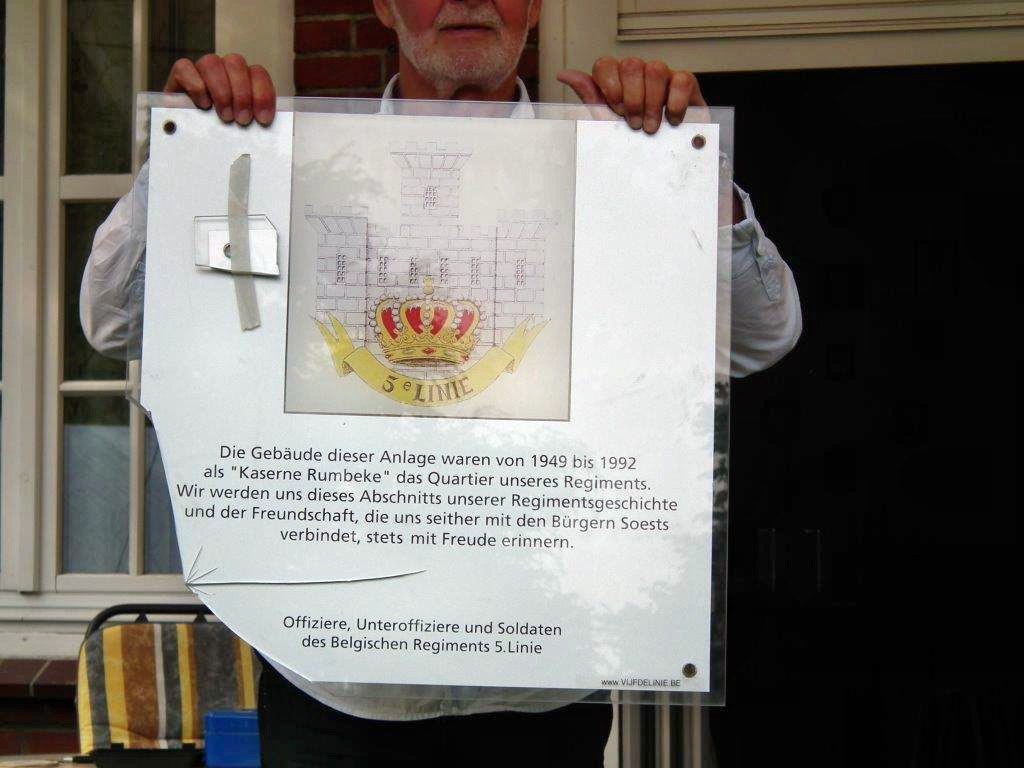 5e LINIE
Die Gebäude dieser Anlage waren von 1949 bis 1992
als "Kaserne Rumbeke" das Quartier unseres Regiments.
Wir werden uns dieses Abschnitts unserer Regimentsgeschichte
und der Freundschaft, die uns seither mit den Bürgern Soests
verbindet, stets mit Freude erinnern.
Offiziere, Unteroffiziere und Soldaten
des Belgischen Regiments 5.Linie
www.VIJFDELINIE.BE